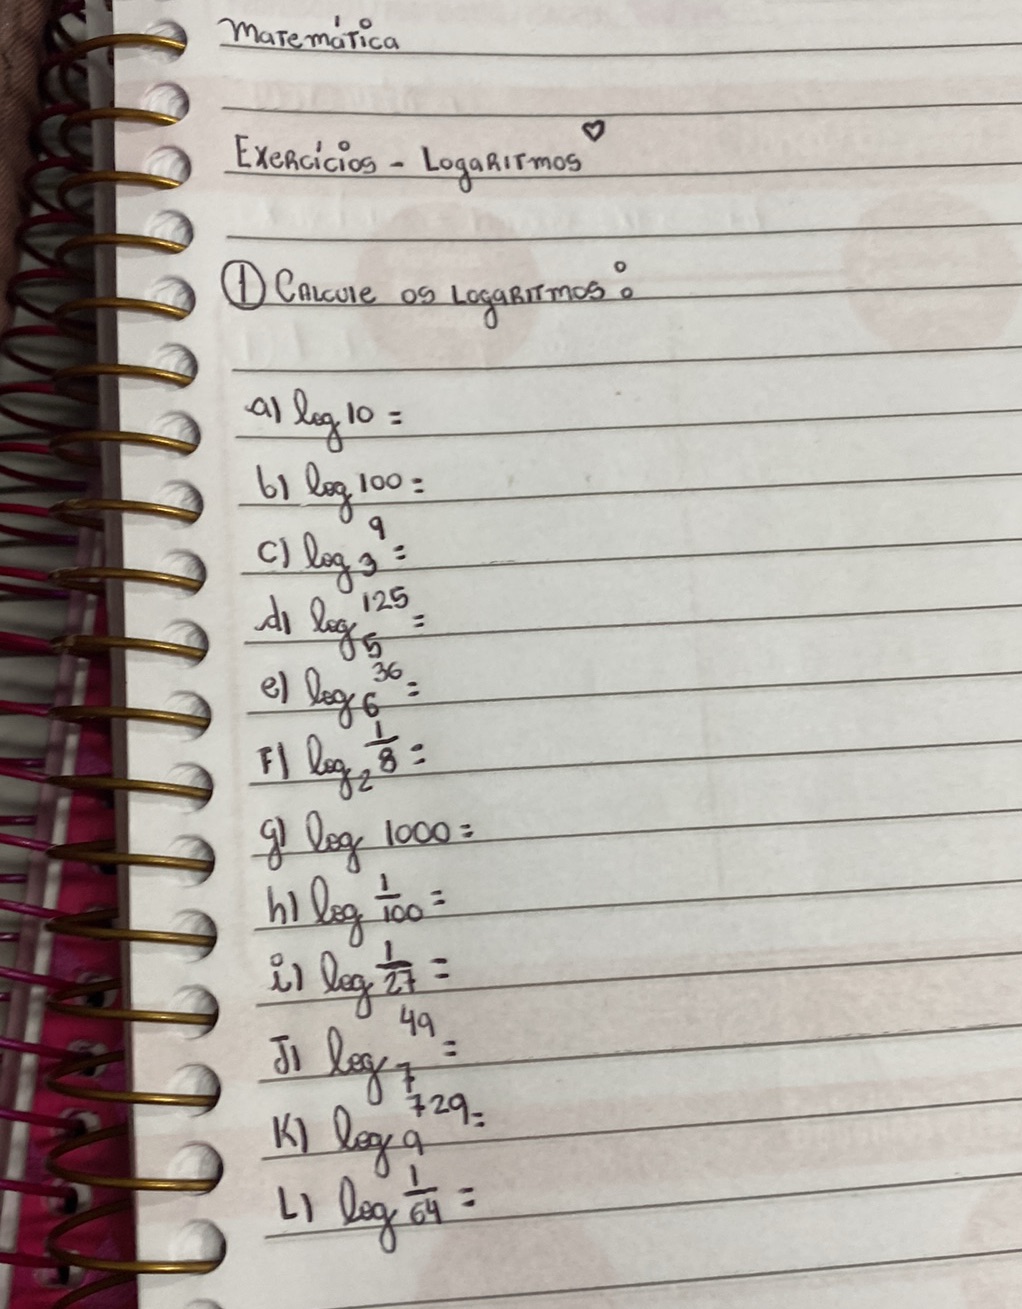 Matemática
Exercícios - Logaritmos ♡
① Calcule os Logaritmos:
a) log 10 =
b) log 100 =
c) log₃ 9 =
d) log₅ 125 =
e) log₆ 36 =
F) log₂ 1/8 =
g) log 1000 =
h) log 1/100 =
i) log 1/27 =
J) log₇ 49 =
K) log₉ 729 =
L) log 1/64 =